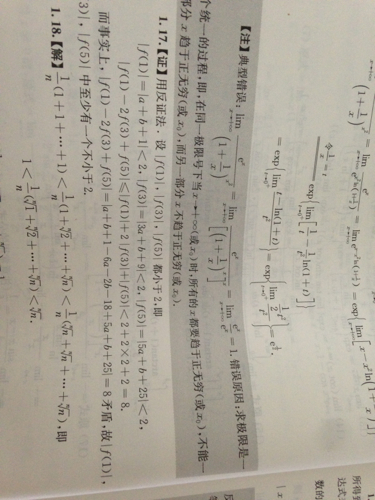 lim e^x/(1+1/x)^{x²} = lim e^x/e^{x² ln(1+1/x)} = lim e^{x-x² ln(1+1/x)} = exp{lim [x-x² ln(1+1/x)]}
令 1/x = t, exp{lim [1/t - 1/t² ln(1+t)]}
= exp{lim t-ln(1+t)/t²} = exp{lim ½t²/t²} = e^{½}.
【注】典型错误: lim e^x/(1+1/x)^{x²} = lim e^x/[(1+1/x)^x]^x = lim e^x/e^x = 1. 错误原因:求极限是一
个统一的过程,即,在同一极限号下当 x→+∞(或 x₀)时,所有的 x 都要趋于正无穷(或 x₀),不能一
部分 x 趋于正无穷(或 x₀),而另一部分 x 不趋于正无穷(或 x₀).
1.17.【证】用反证法. 设 |f(1)|, |f(3)|, |f(5)| 都小于 2,即
|f(1)|=|a+b+1|<2, |f(3)|=|3a+b+9|<2, |f(5)|=|5a+b+25|<2,
|f(1)-2f(3)+f(5)|≤|f(1)|+2|f(3)|+|f(5)|<2+2×2+2=8.
而事实上, |f(1)-2f(3)+f(5)|=|a+b+1-6a-2b-18+5a+b+25|=8 矛盾,故 |f(1)|,
3)|, |f(5)| 中至少有一个不小于 2.
1.18.【解】 1/n(1+1+…+1)<1/n(1+√2+…+ⁿ√n)<1/n(ⁿ√n+ⁿ√n+…+ⁿ√n),即
1<1/n(√1+√2+…+ⁿ√n)<ⁿ√n,
所得
达式
数的